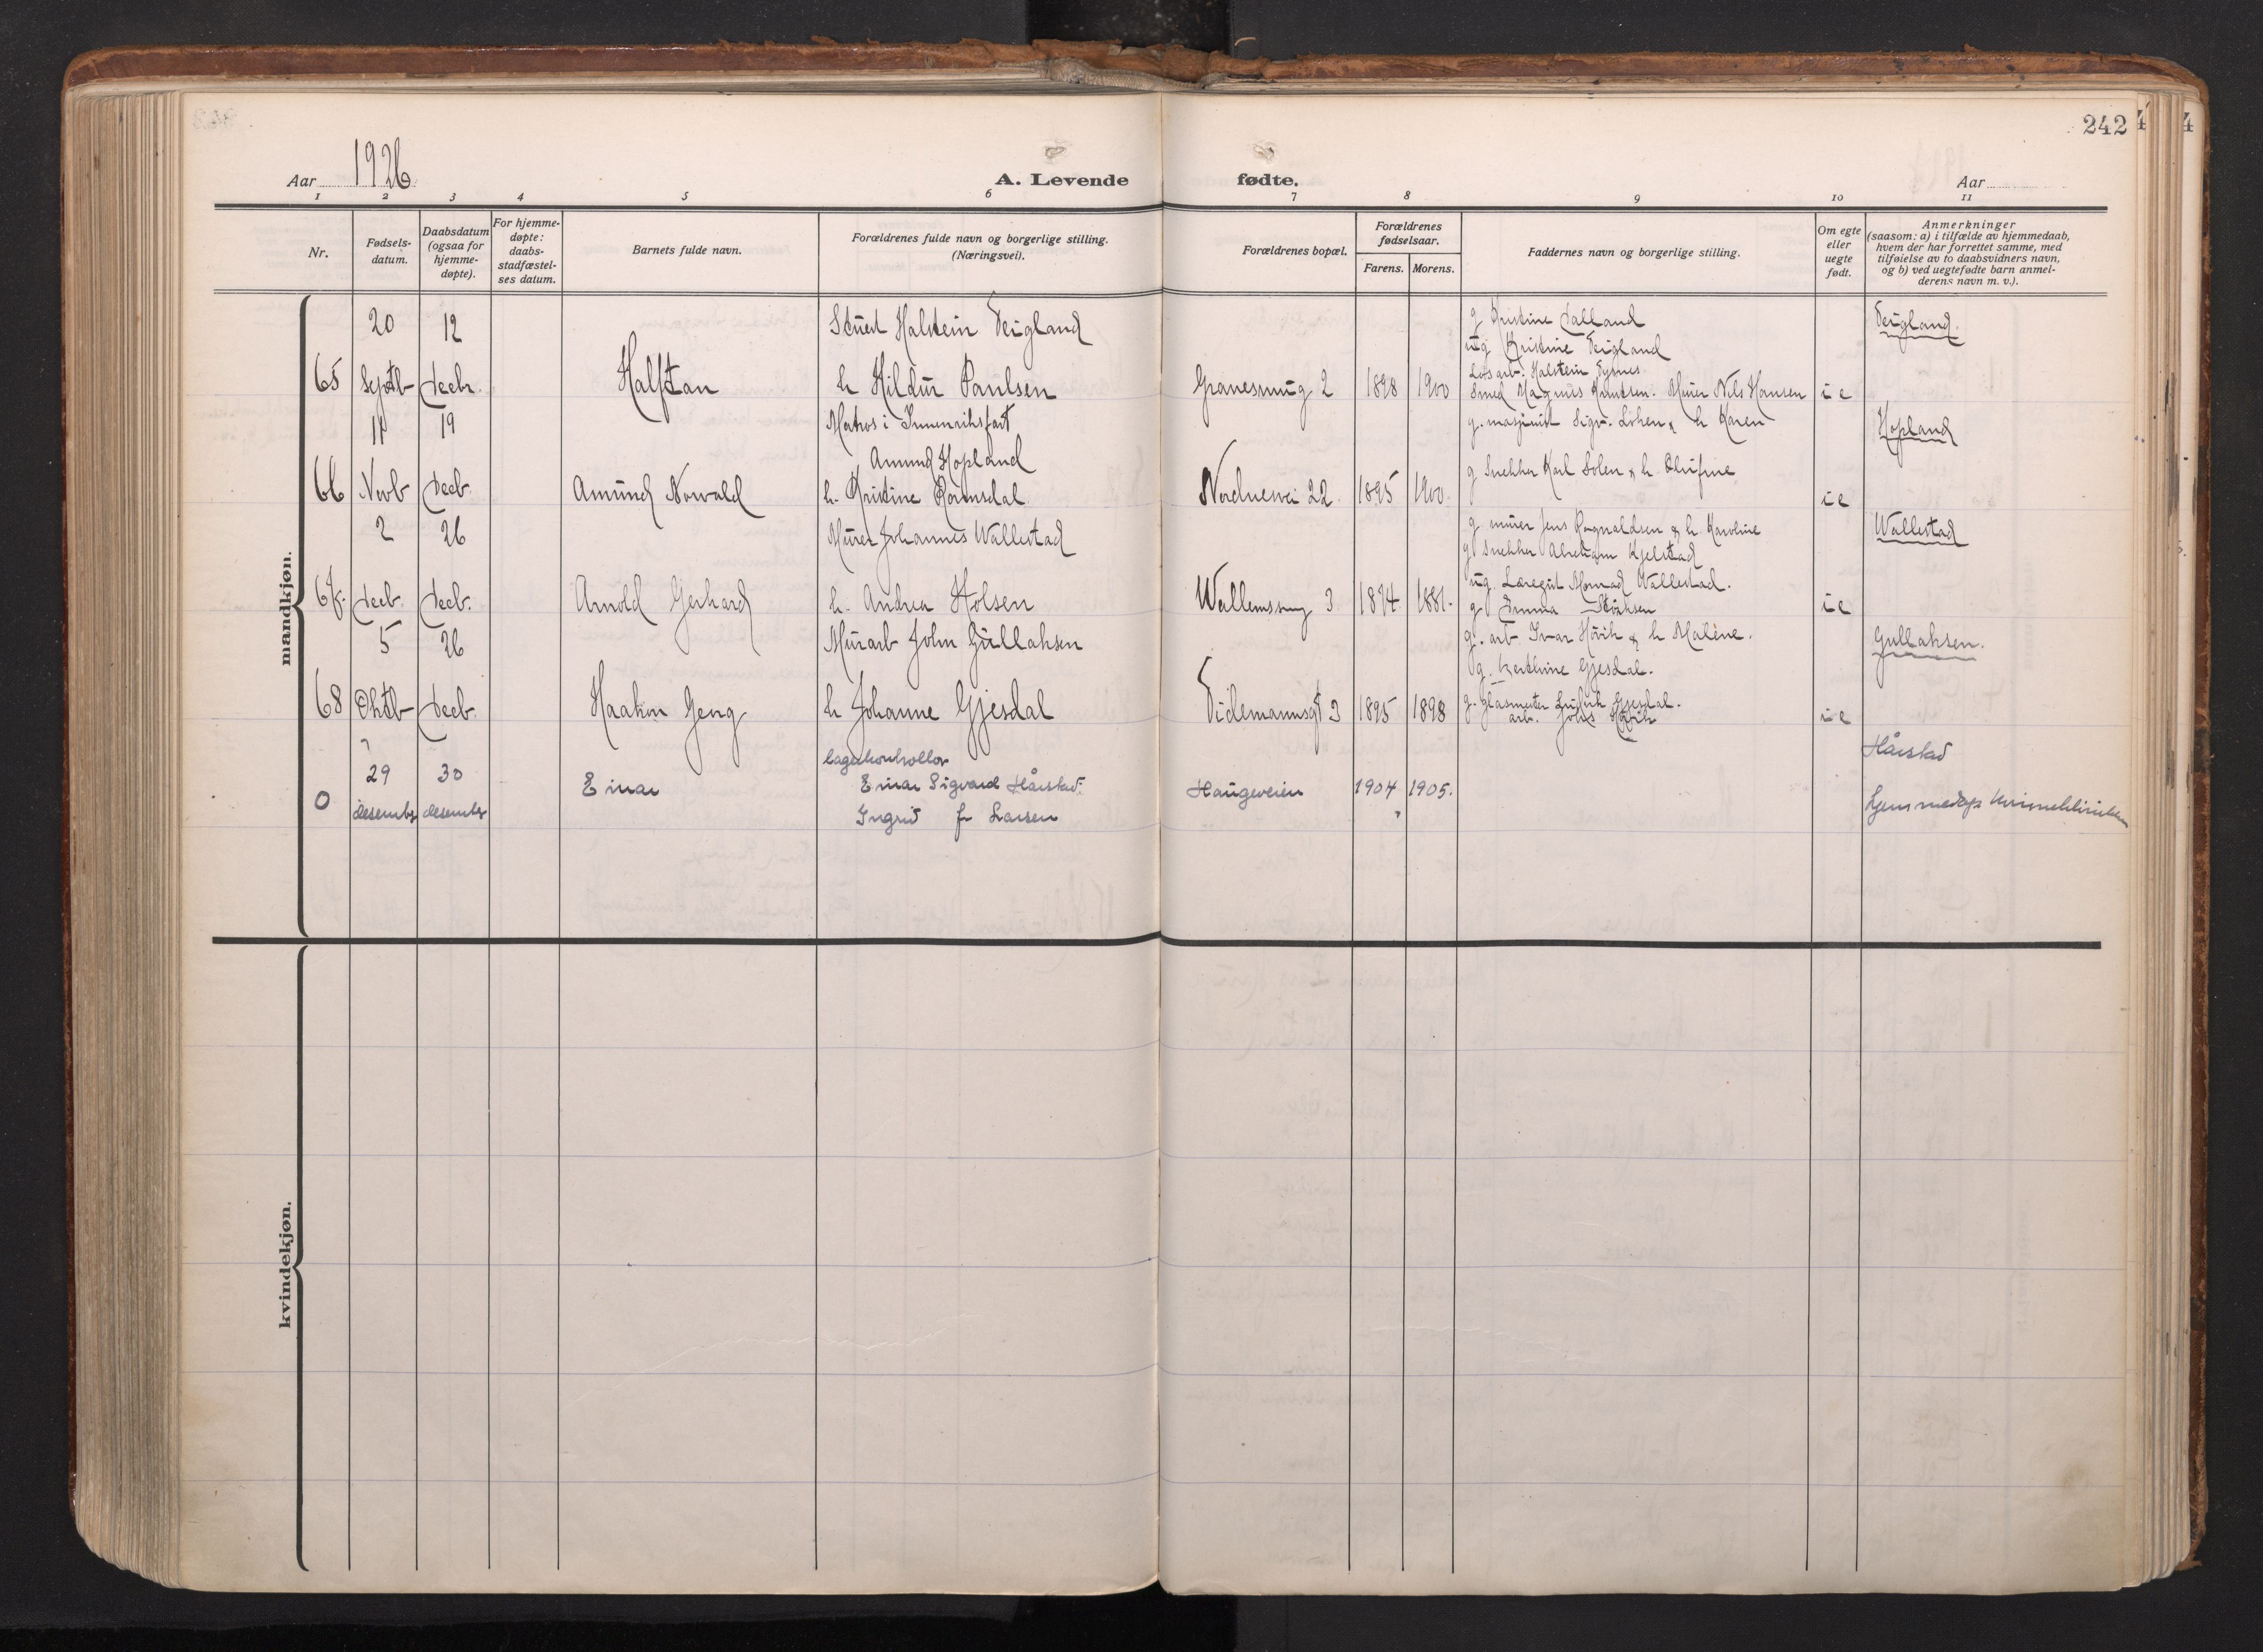 242
Aar 1926
A. Levende fødte.
Aar
1 2 3 4 5 6 7 8 9 10 11
Nr.
Fødsels-
datum.
Daabsdatum
(ogsaa for
hjemme-
døpte).
For hjemme-
døpte:
daabs-
stadfæstel-
ses datum.
Barnets fulde navn.
Forældrenes fulde navn og borgerlige stilling.
(Næringsvei).
Forældrenes bopæl.
Forældrenes
fødselsaar.
Farens. Morens.
Faddernes navn og borgerlige stilling.
Om egte
eller
uegte
født.
Anmerkninger
(saasom: a) i tilfælde av hjemmedaab,
hvem der har forrettet samme, med
tilføielse av to daabsvidners navn,
og b) ved uegtefødte barn anmel-
derens navn m. v.).
mandkjøn.
65
20
Septb
12
Decbr.
Halftan
Stuert Halstein Teigland
h Hildur Paulsen
Granesmug 2
1898 1900
g Kristine Dalland
ug Kristine Teigland
Løsarb. Halstein Tysnes
Smed Magnus Knutsen. Murer Nils Hansen
i e
Teigland.
66
11
Novb
19
Decb.
Amund Norvald
Matros i Innenriksfart
Amund Hopland
h. Kristine Romsdal
Nordnesvei 22.
1895 1900.
g. masjinist Sigv. Lohen & h Karen
g Snekker Karl Solen & h. Olufine
i e
Hopland
67.
2
Decb.
26
Decb.
Arnold Gerhard
Murer Johannes Wallestad
h. Andrea Holsen
Wallemsmug 3
1894 1881.
g murer Jens Ragnaldsen & h Karoline
g Snekker Abraham Kjelstad
ug. Læregut Monrad Wallestad.
g Emma
i e
Wallestad
68
5
Oktb
26
Decb.
Haakon Georg
Murarb John Gullaksen
h Johanne Gjesdal
Tidemannsgt 3
1895 1898
g. arb Ivar Håvik & h Malene.
g. Kathrine Gjesdal.
g. Glasmester Ludvik Gjesdal.
arb. Johs Håvik
i e
Gullaksen.
0
29
desember
30
desember
Einar
lagerkontrollør
Einar Sigvard Hårstad.
Ingrid f. Larsen
Haugeveien
1904 1905.
Hårstad
hjemmedøpt Kvinneklinikken
kvindekjøn.